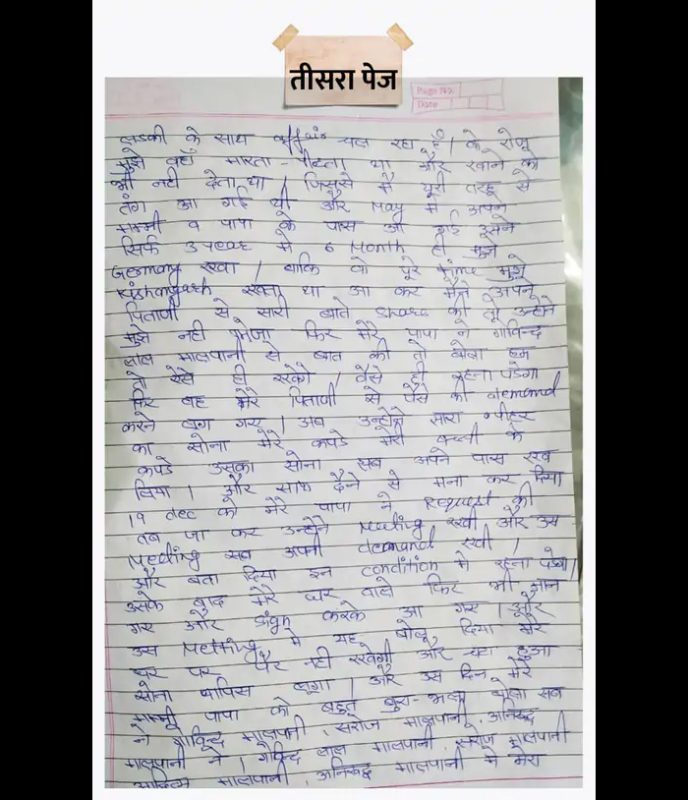 तीसरा पेज
Page No.
Date
लडकी के साथ affair चल रहा है। के रोज
मुझे वहाँ मारता-पीटता था और खाने को
भी नही देता था। जिससे मै पूरी तरह से
तंग आ गई थी और May मे अपने
मम्मी व पापा के पास आ गई उसने
सिर्फ 3 year मे 6 Month ही मुझे
Germany रखा। बाकि वो पूरे time मुझे
Kishangarh रखता था आ कर मैने अपने
पिताजी से सारी बाते share की तो उन्होने
मुझे नही भेजा फिर मेरे पापा ने गोविन्द
लाल मालपानी से बात की तो बोला हम
तो ऐसे ही रखेगे। वैसे ही रहना पडेगा
फिर वह मेरे पिताजी से पैसे की demand
करने लग गए। अब उन्होने सारा पीहर
का सोना मेरे कपडे मेरी बच्ची के
कपडे उसका सोना सब अपने पास रख
लिया। और साफ देने से मना कर दिया
19 dec को मेरे पापा ने Request की
तब जा कर उन्होने Meeting रखी और उस
Meeting सब अपनी demand रखी।
और बता दिया इन condition मे रहना पडेगा
उसके बाद मेरे घर वाले फिर भी मान
गए और sign करके आ गए। और
उस Metting मे यह बोल दिया मेरे
घर पर पैर नही रखेगी और हुआ
सोना वापिस लूगा। और उस दिन मेरे
मम्मी पापा को बहुत बुरा-भला बोला सब
ने गोविन्द मालपानी, सरोज मालपानी, अनिरुद्ध
मालपानी ने। गोविन्द लाल मालपानी, सरोज मालपानी
मालपानी, अनिरुद्ध मालपानी ने मेरा